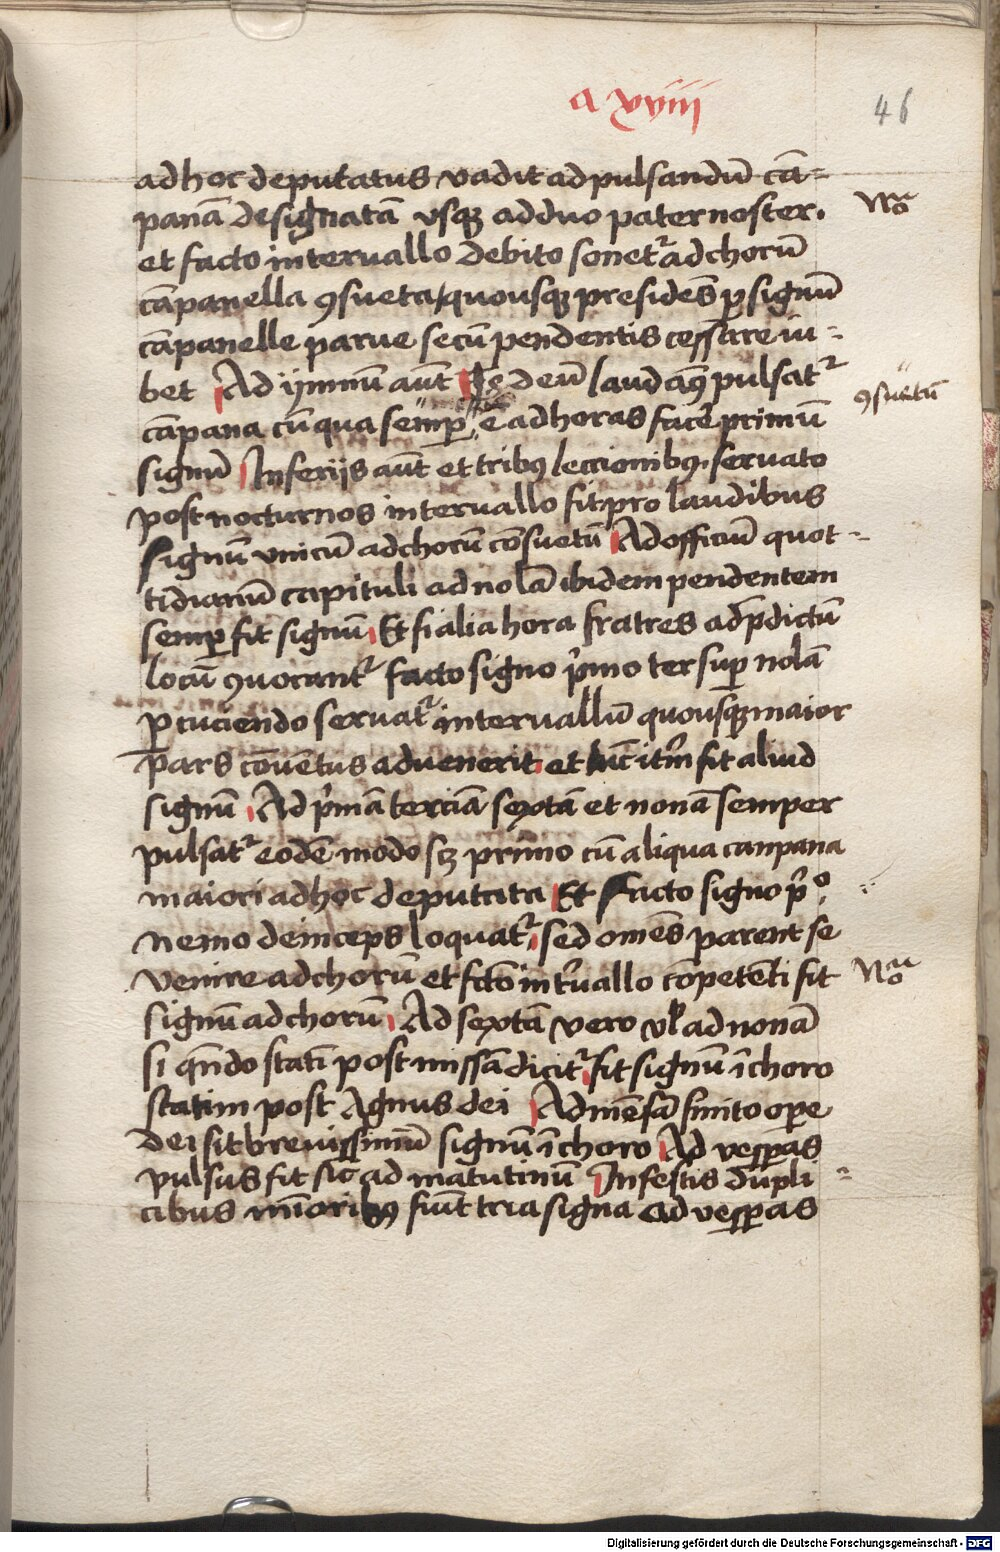 a xviiii
46
ad hoc deputatus vadit ad pulsandū cā-
panā designatā vsqꝫ ad duo pater noster.
Nōa
et facto interuallo debito sonetᷣ ad chorū
cāpanella ꝯsueta / quousqꝫ presidēs ꝑ signū
cāpanelle parue secū pendentis cessare iu-
bet Ad ijmnū aūt Te deū laudāꝯ pulsatᷣ
cāpana cū qua semꝑ e ad horas facē primū
ꝯsuetū
signū In ferijs aūt et tribꝯ leccionibꝯ. seruato
post nocturnos interuallo fit pro laudibus
signū vnicū ad chorū cōsuetū Ad officiū quot-
tidianū capituli ad nolā ibidem pendentem
semꝑ fit signū Et si alia hora fratres ad p̄dictū
locū ꝯuocantᷣ facto signo p̄mo ter suꝑ nolā
ꝑcuciendo seruatᷣ interuallū quousqꝫ maior
pars cōuētus aduenerit et tūc itm̄ fit aliud
signū Ad p̄mā terciā sextā et nonā semper
pulsatᷣ eodē modo sꝫ primo cū aliqua canpana
maiori ad hoc deputata Et facto signo p̄º
nemo deinceps loquatᷣ sed om̄es parent se
venire ad chorū et fc̄to int̄uallo cōpetēti fit
Nōa
signū ad chorū Ad sextā vero vl̄ ad nonā
si qn̄do statī post missā dicitᷣ fit signū ī choro
statim post Agnus dei Ad mēsā finito oꝑe
dei fit breuissimū signū ī choro Ad vesꝑas
pulsus fit sic ad matutinū In festis dupli-
cibus mīoribꝯ fiūt tria signa ad vesꝑas
Digitalisierung gefördert durch die Deutsche Forschungsgemeinschaft - DFG